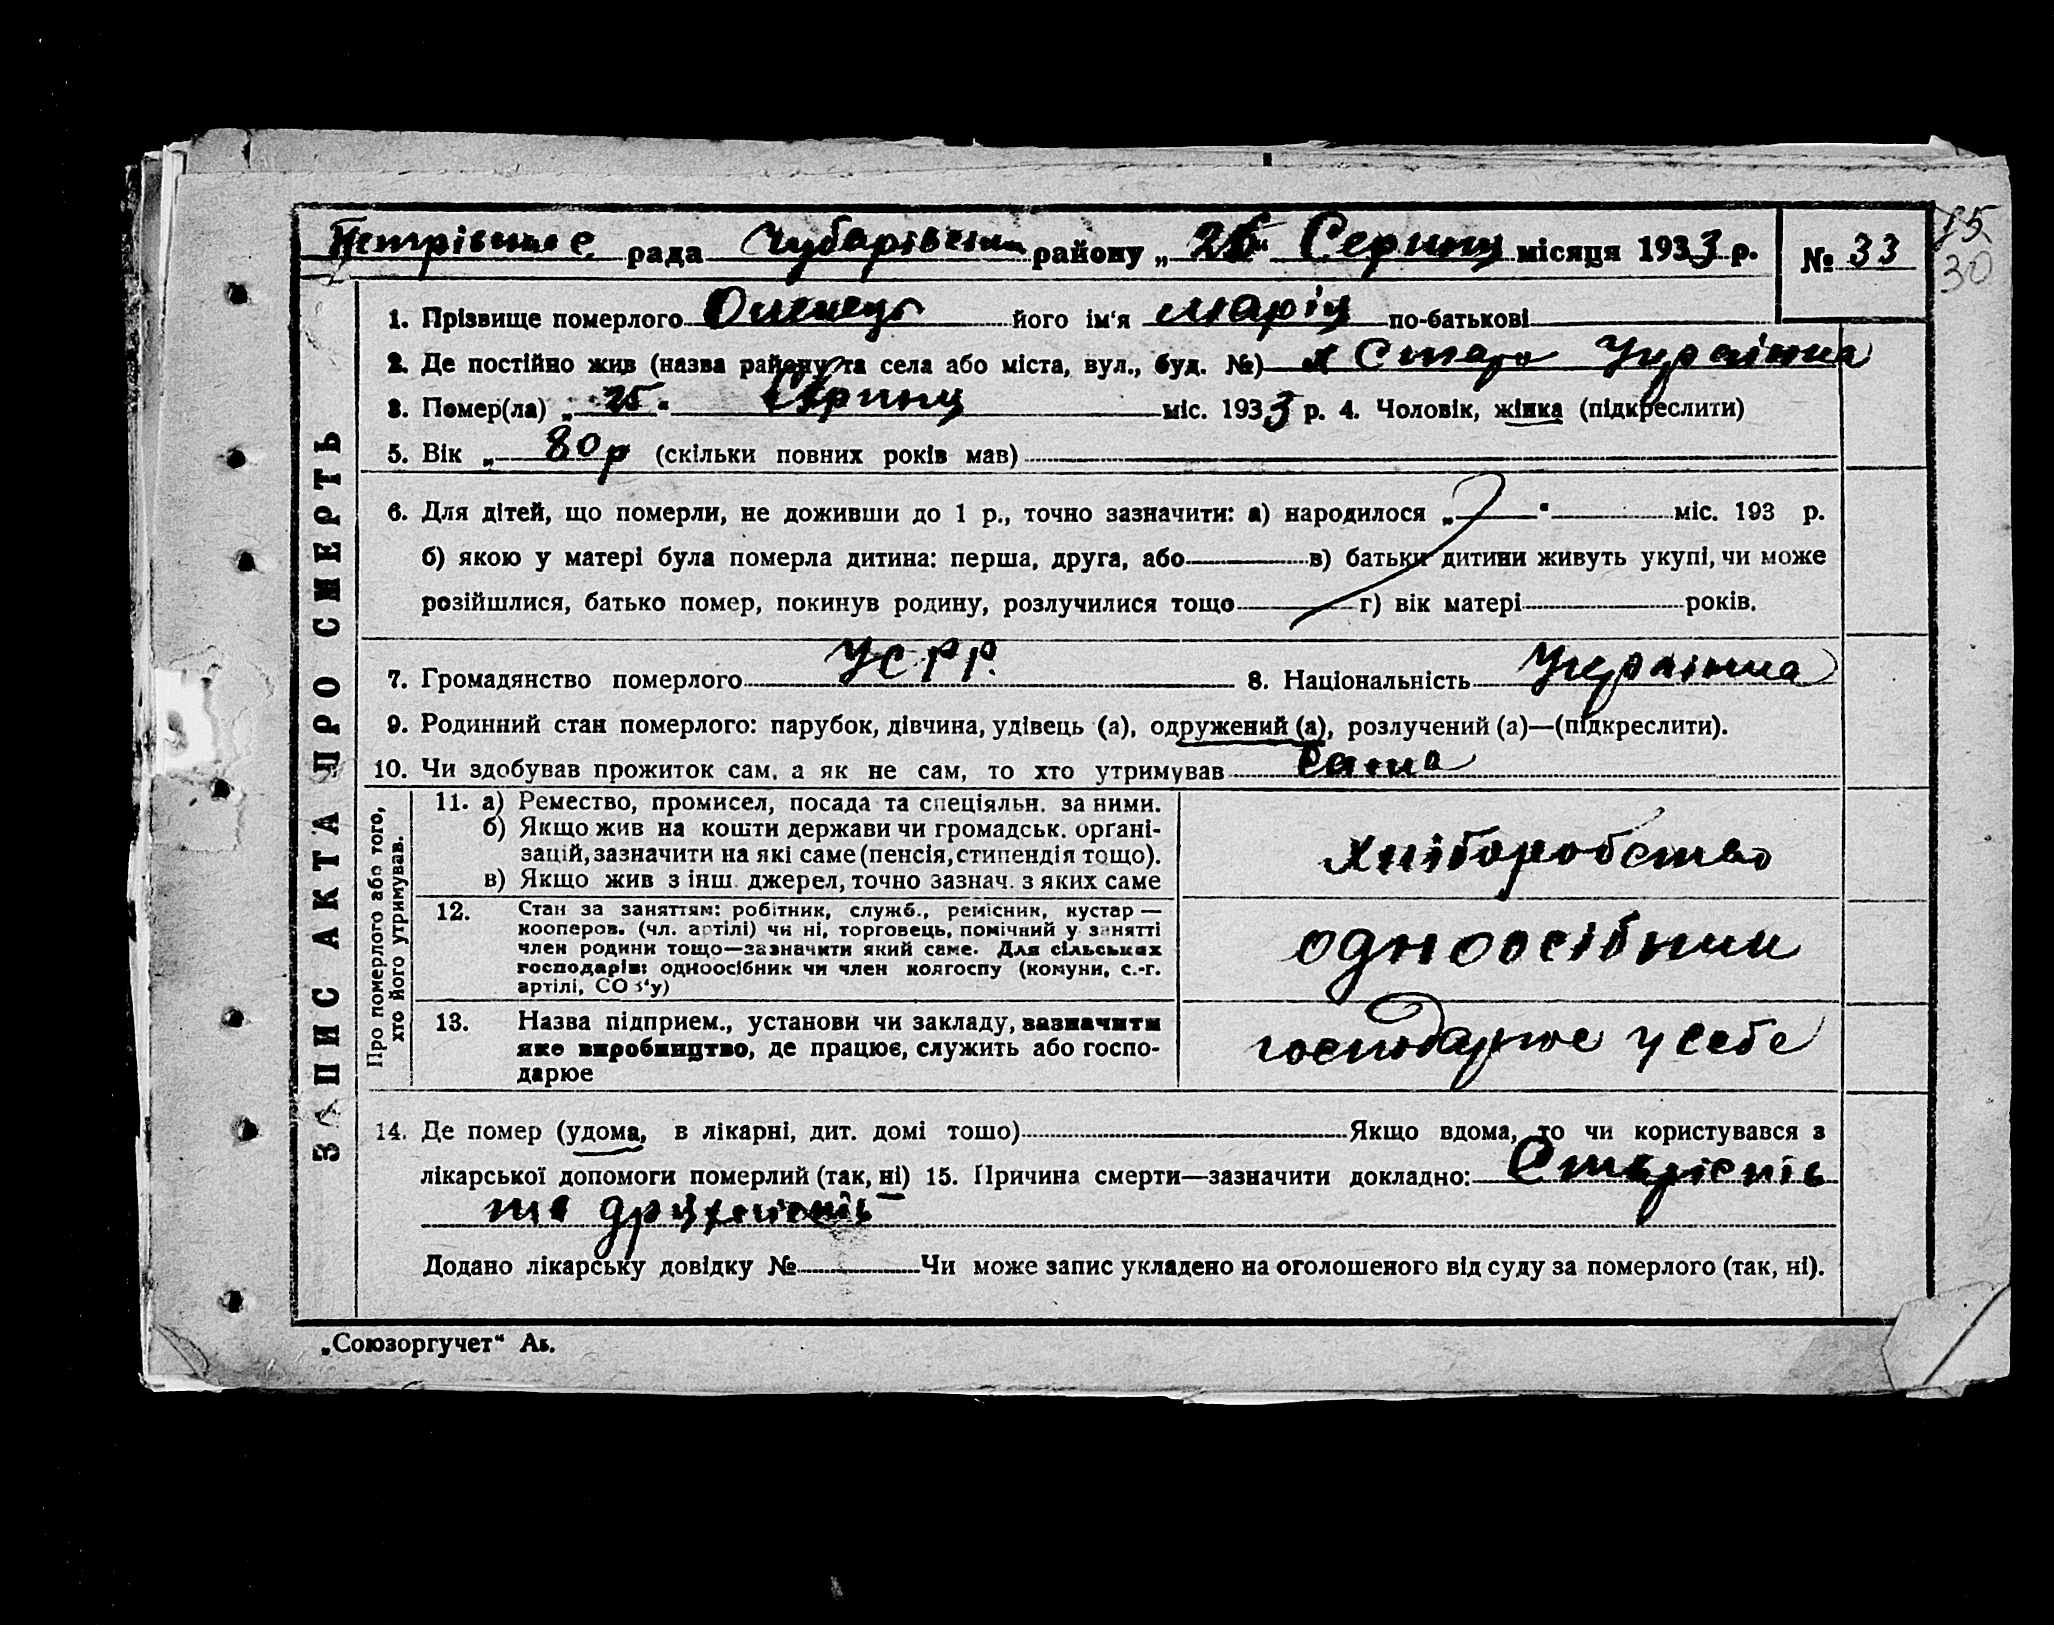 рада Чубарівськ району „26" Серпня місяця 1933 р.
№ 33
15
30
ЗАПИС АКТА ПРО СМЕРТЬ
1. Прізвище померлого його ім'я Марія по-батькові
2. Де постійно жив (назва району та села або міста, вул., буд. №) х Стара Українка
3. Помер(ла) „25" Серпня міс. 1933 р. 4. Чоловік, жінка (підкреслити)
5. Вік „ 80 р (скільки повних років мав)
6. Для дітей, що померли, не доживши до 1 р., точно зазначити: а) народилося „ " міс. 193 р.
б) якою у матері була померла дитина: перша, друга, або в) батьки дитини живуть укупі, чи може
розійшлися, батько помер, покинув родину, розлучилися тощо г) вік матері років.
7. Громадянство померлого УСРР. 8. Національність Українка
9. Родинний стан померлого: парубок, дівчина, удівець (а), одружений (а), розлучений (а)—(підкреслити).
10. Чи здобував прожиток сам, а як не сам, то хто утримував Сама
Про померлого або того,
хто його утримував.
11. а) Ремество, промисел, посада та спеціяльн. за ними.
б) Якщо жив на кошти держави чи громадськ. орґані-
зацій, зазначити на які саме (пенсія, стипендія тощо).
в) Якщо жив з інш. джерел, точно зазнач. з яких саме
хліборобство
12. Стан за заняттям: робітник, служб., ремісник, кустар —
кооперов. (чл. артілі) чи ні, торговець, помічний у занятті
член родини тощо—зазначити який саме. Для сільських
господарів: одноосібник чи член колгоспу (комуни, с.-г.
артілі, СОЗ'у)
одноосібник
13. Назва підприєм., установи чи закладу, зазначити
яке виробництво, де працює, служить або госпо-
дарює
господарює у себе
14. Де помер (удома, в лікарні, дит. домі тошо) Якщо вдома, то чи користувався з
лікарської допомоги померлий (так, ні) 15. Причина смерти—зазначити докладно: Старість
та дряхлість
Додано лікарську довідку № Чи може запис укладено на оголошеного від суду за померлого (так, ні).
„Союзоргучет"